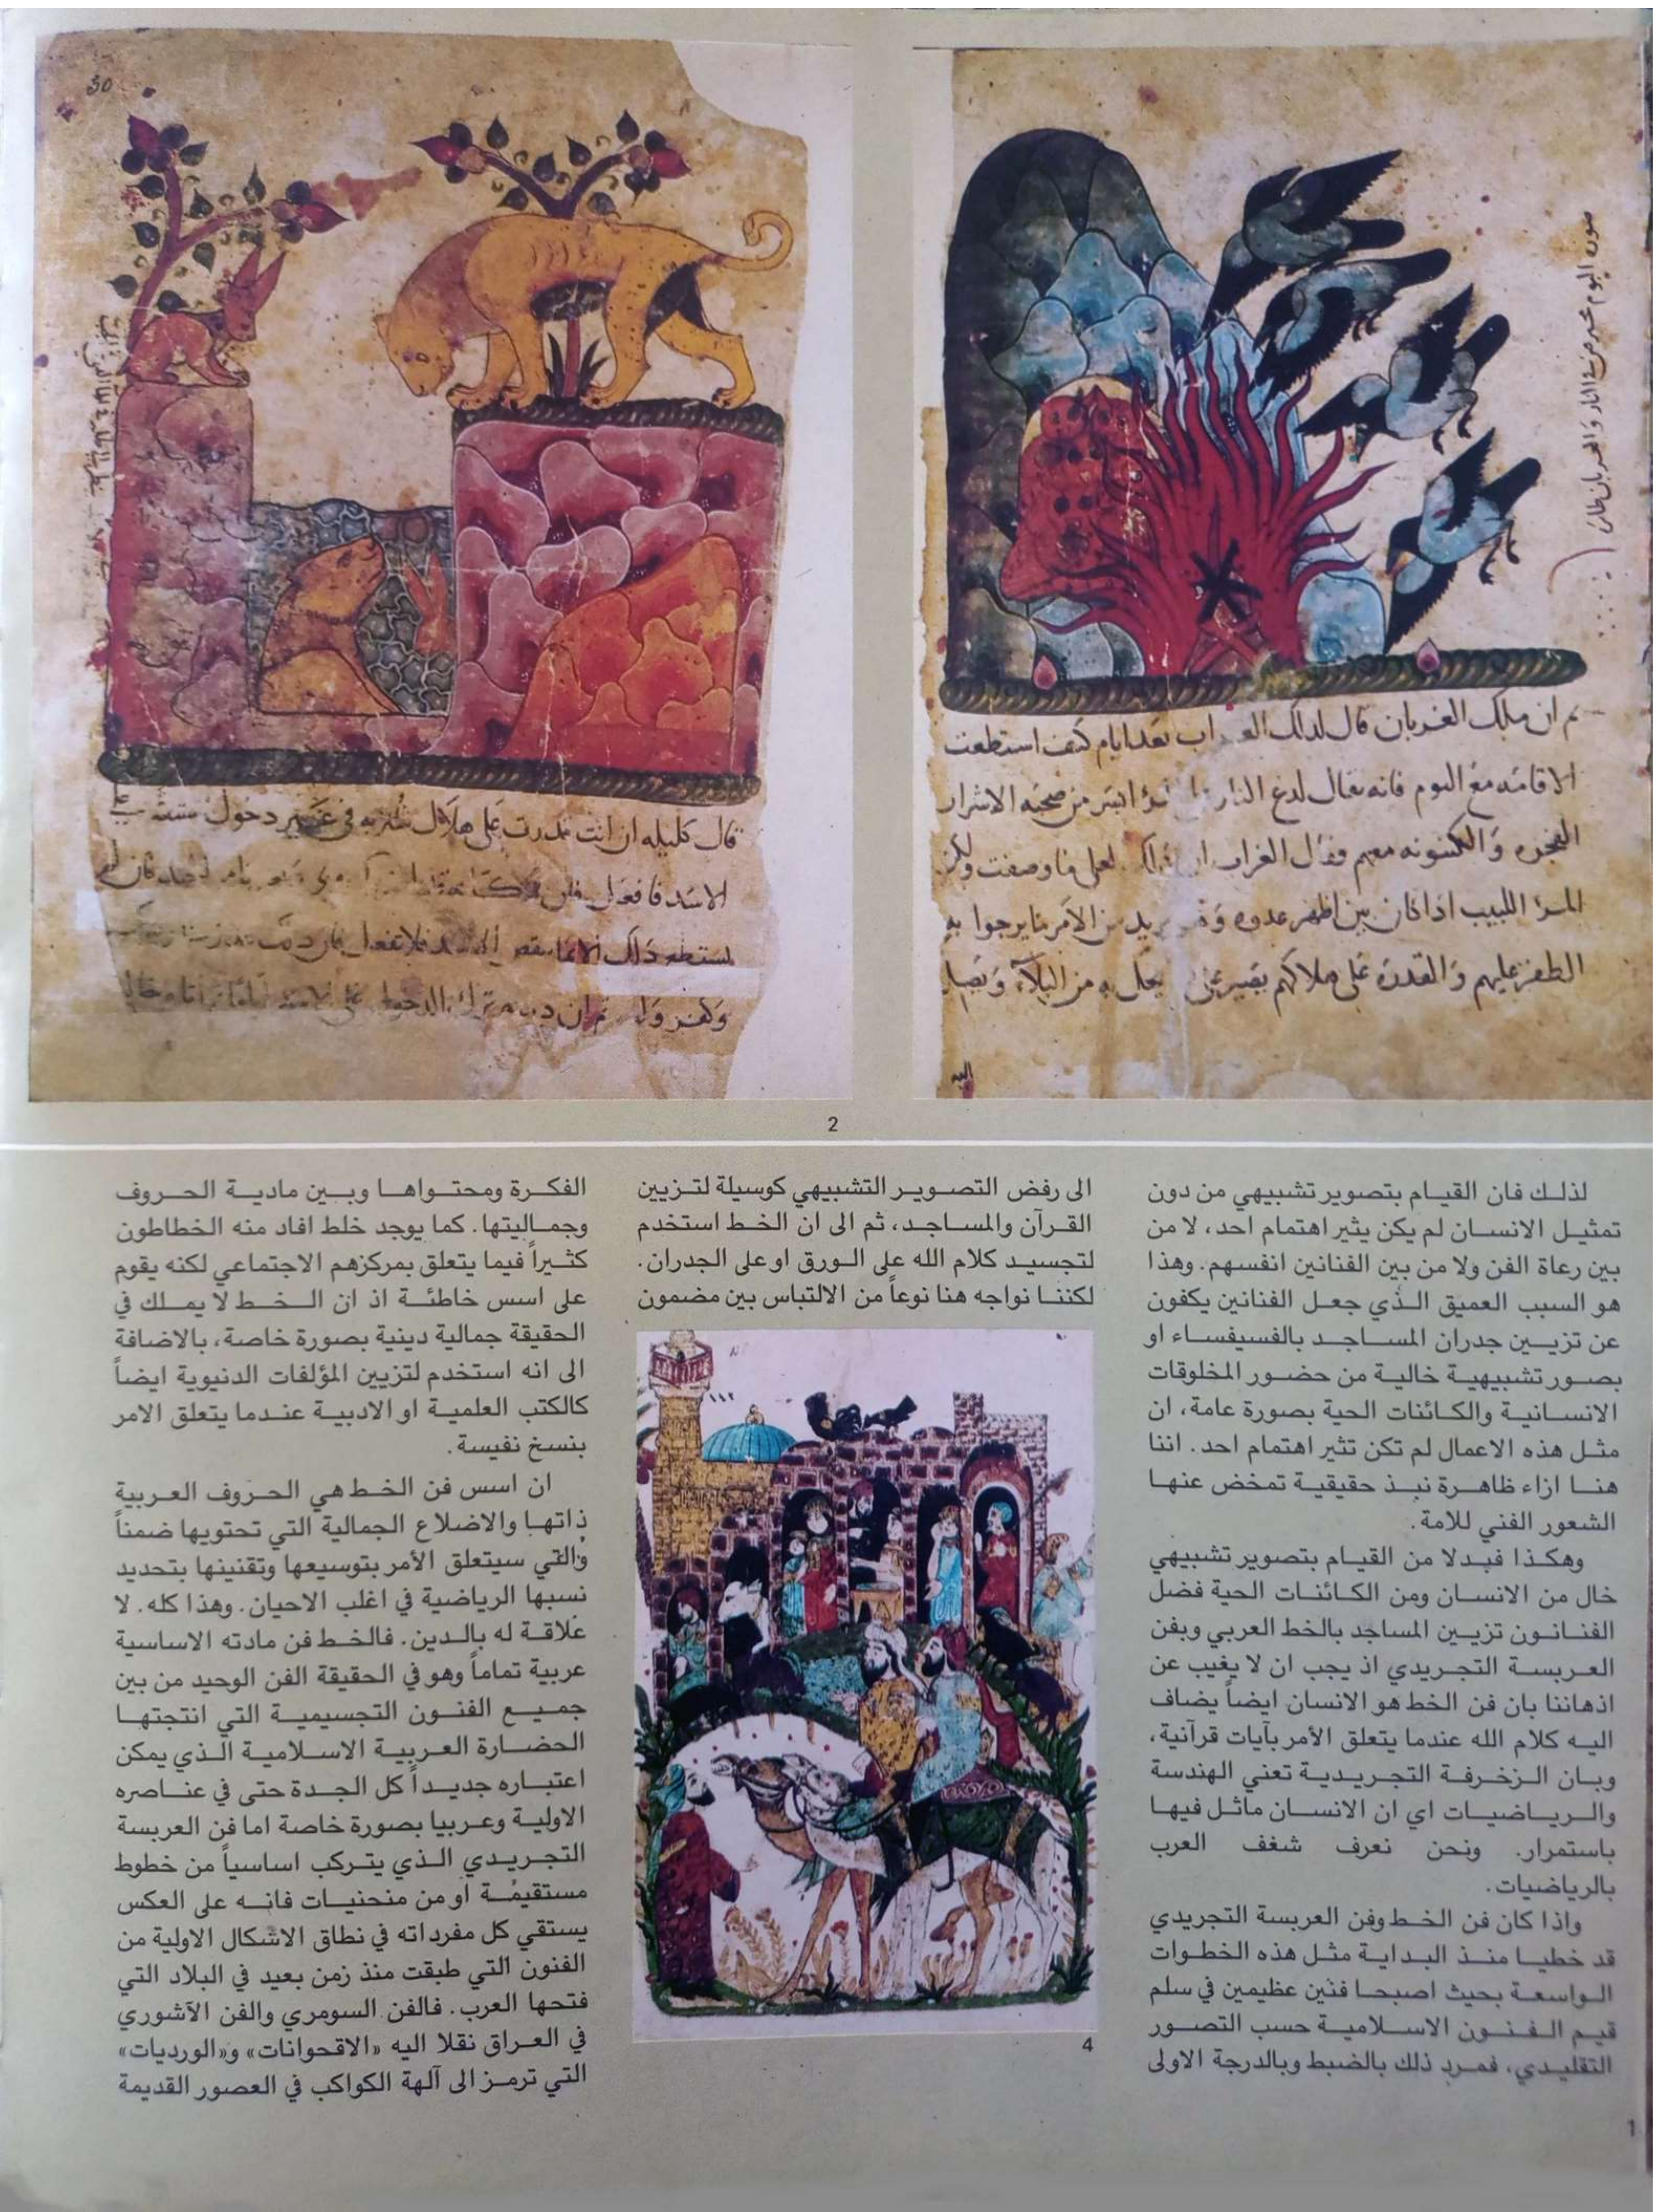 30
صورة البوم محترقين في النار والغربان
ثم ان ملك الغربان قال لذلك الغراب بعد ايام كيف استطعت
الاقامه مع البوم فانه يقال لدغ النار ايسر من صحبه الاشرار
الفجره والكينونه معهم فقال الغراب ان ذلك لعلى ما وصفت ولكن
المرؤ اللبيب اذا كان بين اظهر عدوه وهو يريد من الامر ما يرجوا به
الظفر عليهم والقدرة على هلاكهم يصبر على يحل به من البلآء
اليه
قال كليله ان انت قدرت على هلاك شتربه في غير دخول مشقه
الاسد فافعل فان
يستطع ذلك الا بما فلا تفعل
ثم ان دمنه ترك الدخول على الاسد
2
لذلك فان القيام بتصوير تشبيهي من دون
تمثيل الانسان لم يكن يثير اهتمام احد، لا من
بين رعاة الفن ولا من بين الفنانين انفسهم. وهذا
هو السبب العميق الذي جعل الفنانين يكفون
عن تزيين جدران المساجد بالفسيفساء او
بصور تشبيهية خالية من حضور المخلوقات
الانسانية والكائنات الحية بصورة عامة، ان
مثل هذه الاعمال لم تكن تثير اهتمام احد. اننا
هنا ازاء ظاهرة نبذ حقيقية تمخض عنها
الشعور الفني للامة.
وهكذا فبدلا من القيام بتصوير تشبيهي
خال من الانسان ومن الكائنات الحية فضل
الفنانون تزيين المساجد بالخط العربي وبفن
العربسة التجريدي اذ يجب ان لا يغيب عن
اذهاننا بان فن الخط هو الانسان ايضاً يضاف
اليه كلام الله عندما يتعلق الأمر بآيات قرآنية،
وبان الزخرفة التجريدية تعني الهندسة
والرياضيات اي ان الانسان ماثل فيها
باستمرار. ونحن نعرف شغف العرب
بالرياضيات.
واذا كان فن الخط وفن العربسة التجريدي
قد خطيا منذ البداية مثل هذه الخطوات
الواسعة بحيث اصبحا فنين عظيمين في سلم
قيم الفنون الاسلامية حسب التصور
التقليدي، فمرد ذلك بالضبط وبالدرجة الاولى
الى رفض التصوير التشبيهي كوسيلة لتزيين
القرآن والمساجد، ثم الى ان الخط استخدم
لتجسيد كلام الله على الورق او على الجدران.
لكننا نواجه هنا نوعاً من الالتباس بين مضمون
١١٢
4
الفكرة ومحتواها وبين مادية الحروف
وجماليتها. كما يوجد خلط افاد منه الخطاطون
كثيراً فيما يتعلق بمركزهم الاجتماعي لكنه يقوم
على اسس خاطئة اذ ان الخط لا يملك في
الحقيقة جمالية دينية بصورة خاصة، بالاضافة
الى انه استخدم لتزيين المؤلفات الدنيوية ايضاً
كالكتب العلمية او الادبية عندما يتعلق الامر
بنسخ نفيسة.
ان اسس فن الخط هي الحروف العربية
ذاتها والاضلاع الجمالية التي تحتويها ضمناً
والتي سيتعلق الأمر بتوسيعها وتقنينها بتحديد
نسبها الرياضية في اغلب الاحيان. وهذا كله. لا
علاقة له بالدين. فالخط فن مادته الاساسية
عربية تماماً وهو في الحقيقة الفن الوحيد من بين
جميع الفنون التجسيمية التي انتجتها
الحضارة العربية الاسلامية الذي يمكن
اعتباره جديداً كل الجدة حتى في عناصره
الاولية وعربيا بصورة خاصة اما فن العربسة
التجريدي الذي يتركب اساسياً من خطوط
مستقيمة او من منحنيات فانه على العكس
يستقي كل مفرداته في نطاق الاشكال الاولية من
الفنون التي طبقت منذ زمن بعيد في البلاد التي
فتحها العرب. فالفن السومري والفن الآشوري
في العراق نقلا اليه «الاقحوانات» و«الورديات»
التي ترمز الى آلهة الكواكب في العصور القديمة
1